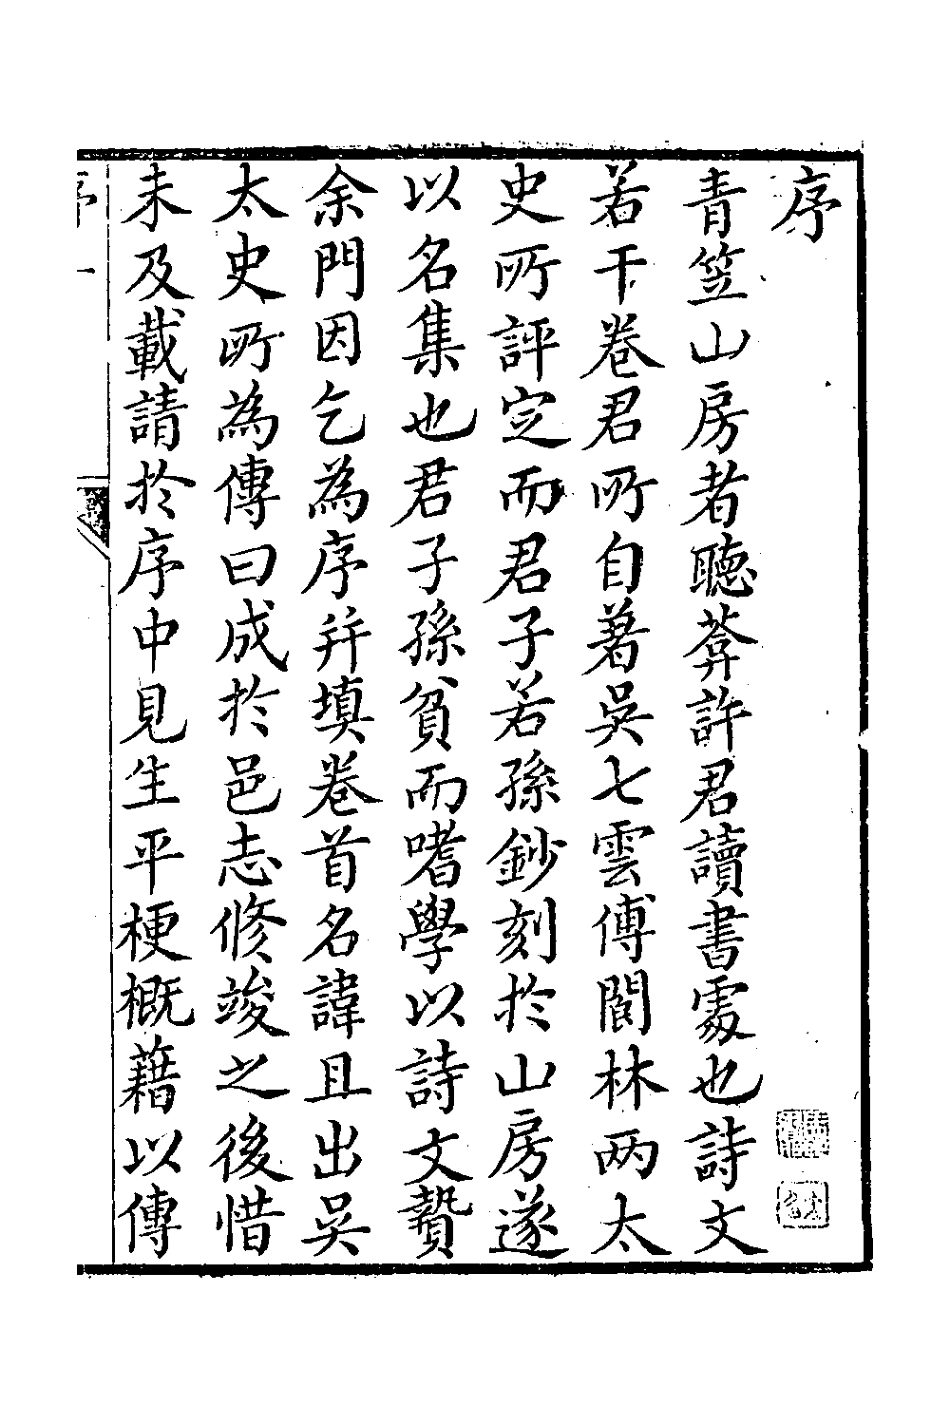 序
青笠山房者聽葊許君讀書處也詩文
若干卷君所自著吳七雲傅閬林两太
史所評定而君子若孫鈔刻於山房遂
以名集也君子孫貧而嗜學以詩文贄
余門因乞為序并填卷首名諱且出吳
太史所為傳曰成於邑志修竣之後惜
未及載請於序中見生平梗概藉以傳
序 一